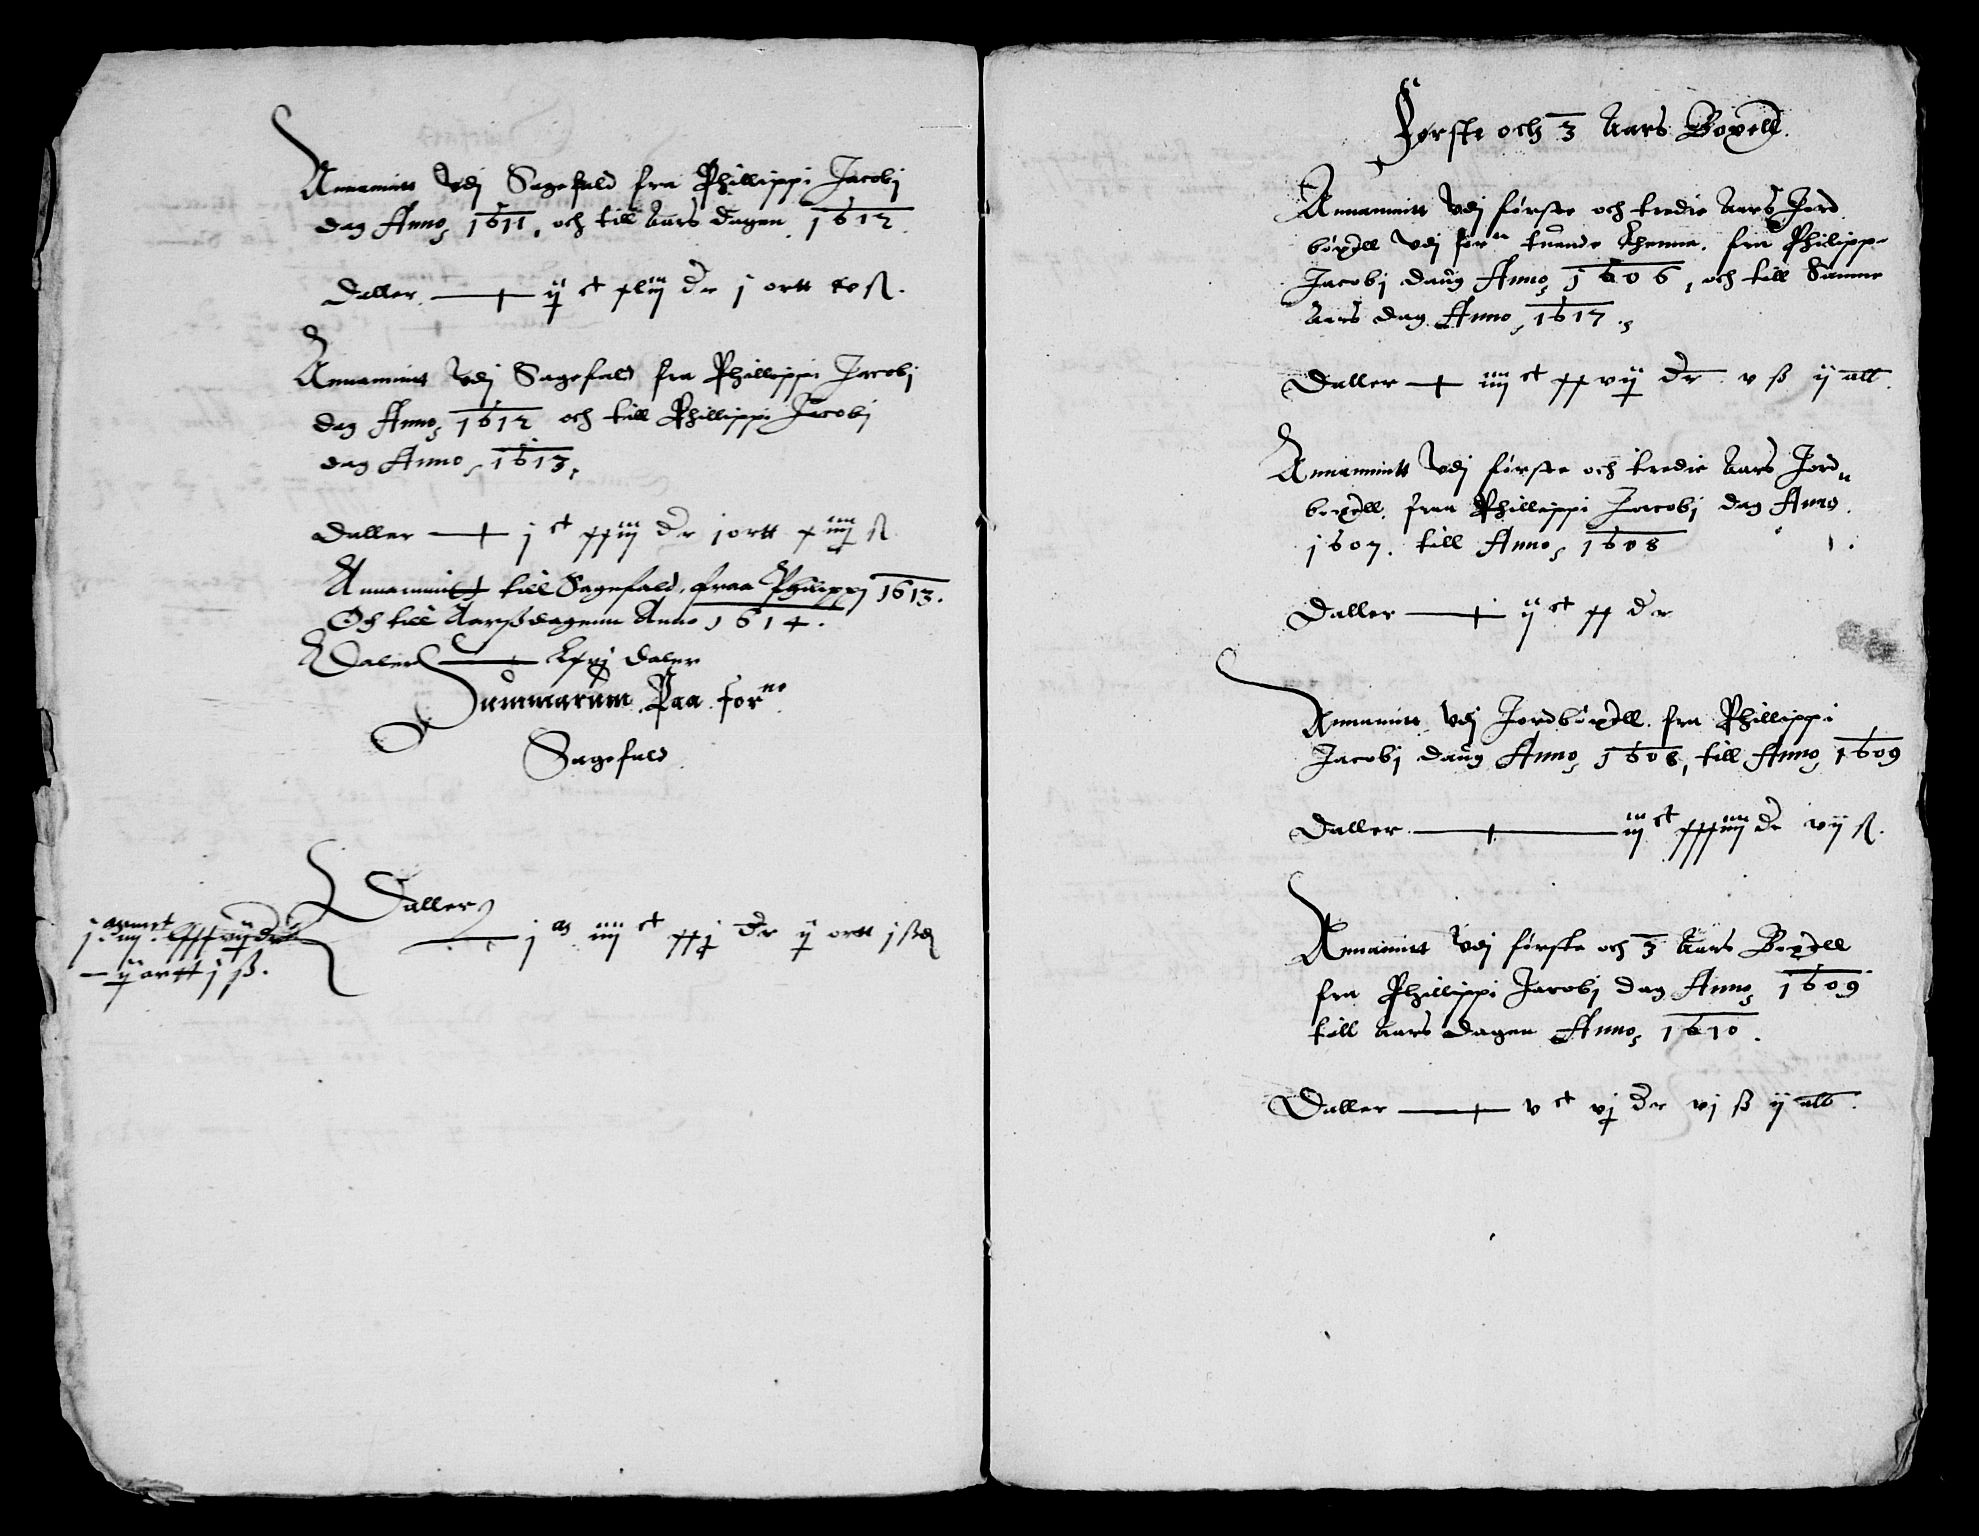 Annammitt Vdj Sagefald fra Phillippi Jacobj
dag Anno 1611, och till Aars dagen 1612
Daller ij ct xliij dr j ortt
Annammitt Vdj Sagefald fra Phillippi Jacobj
dag Anno 1612 och till Phillippi Jacobj
dag Anno 1613,
Daller j ct xxiij dr j ortt xiiij ß
Annammitt till Sagefald, fraa Philippj 1613.
Och till Aarßdagenn Anno 1614.
Daler lxvj daler
Summarum Paa forne
Sagefald
Daller
j m iiij ct xxj dr ij ortt j ß
ij ortt j ß.
Første och 3 Aars Boxell.
Annammitt Vdj første och tredie Aars Jord
boxell Vdj forn tuende Lhenne, fra Philippi
Jacobj daug Anno 1606, och till Samme
Aars dag Anno 1617.
Daller iiij ct xxvij dr v ß ij alb
Annammitt Vdj første och tredie Aars Jord
boxell fraa Phillippi Jacobj dag Anno
1607. till Anno 1608
Daller ij ct xx dr
Annamitt Vdj Jordboxell fra Phillippi
Jacobj daug Anno 1608, till Anno 1609
Daller iij ct xxxiiij dr vij ß.
Annamitt Vdj første och 3 Aars Boxell
fra Phillippi Jacobj dag Anno 1609
till Aars dagen Anno 1610.
Daller v ct vj dr vj ß ij alb.